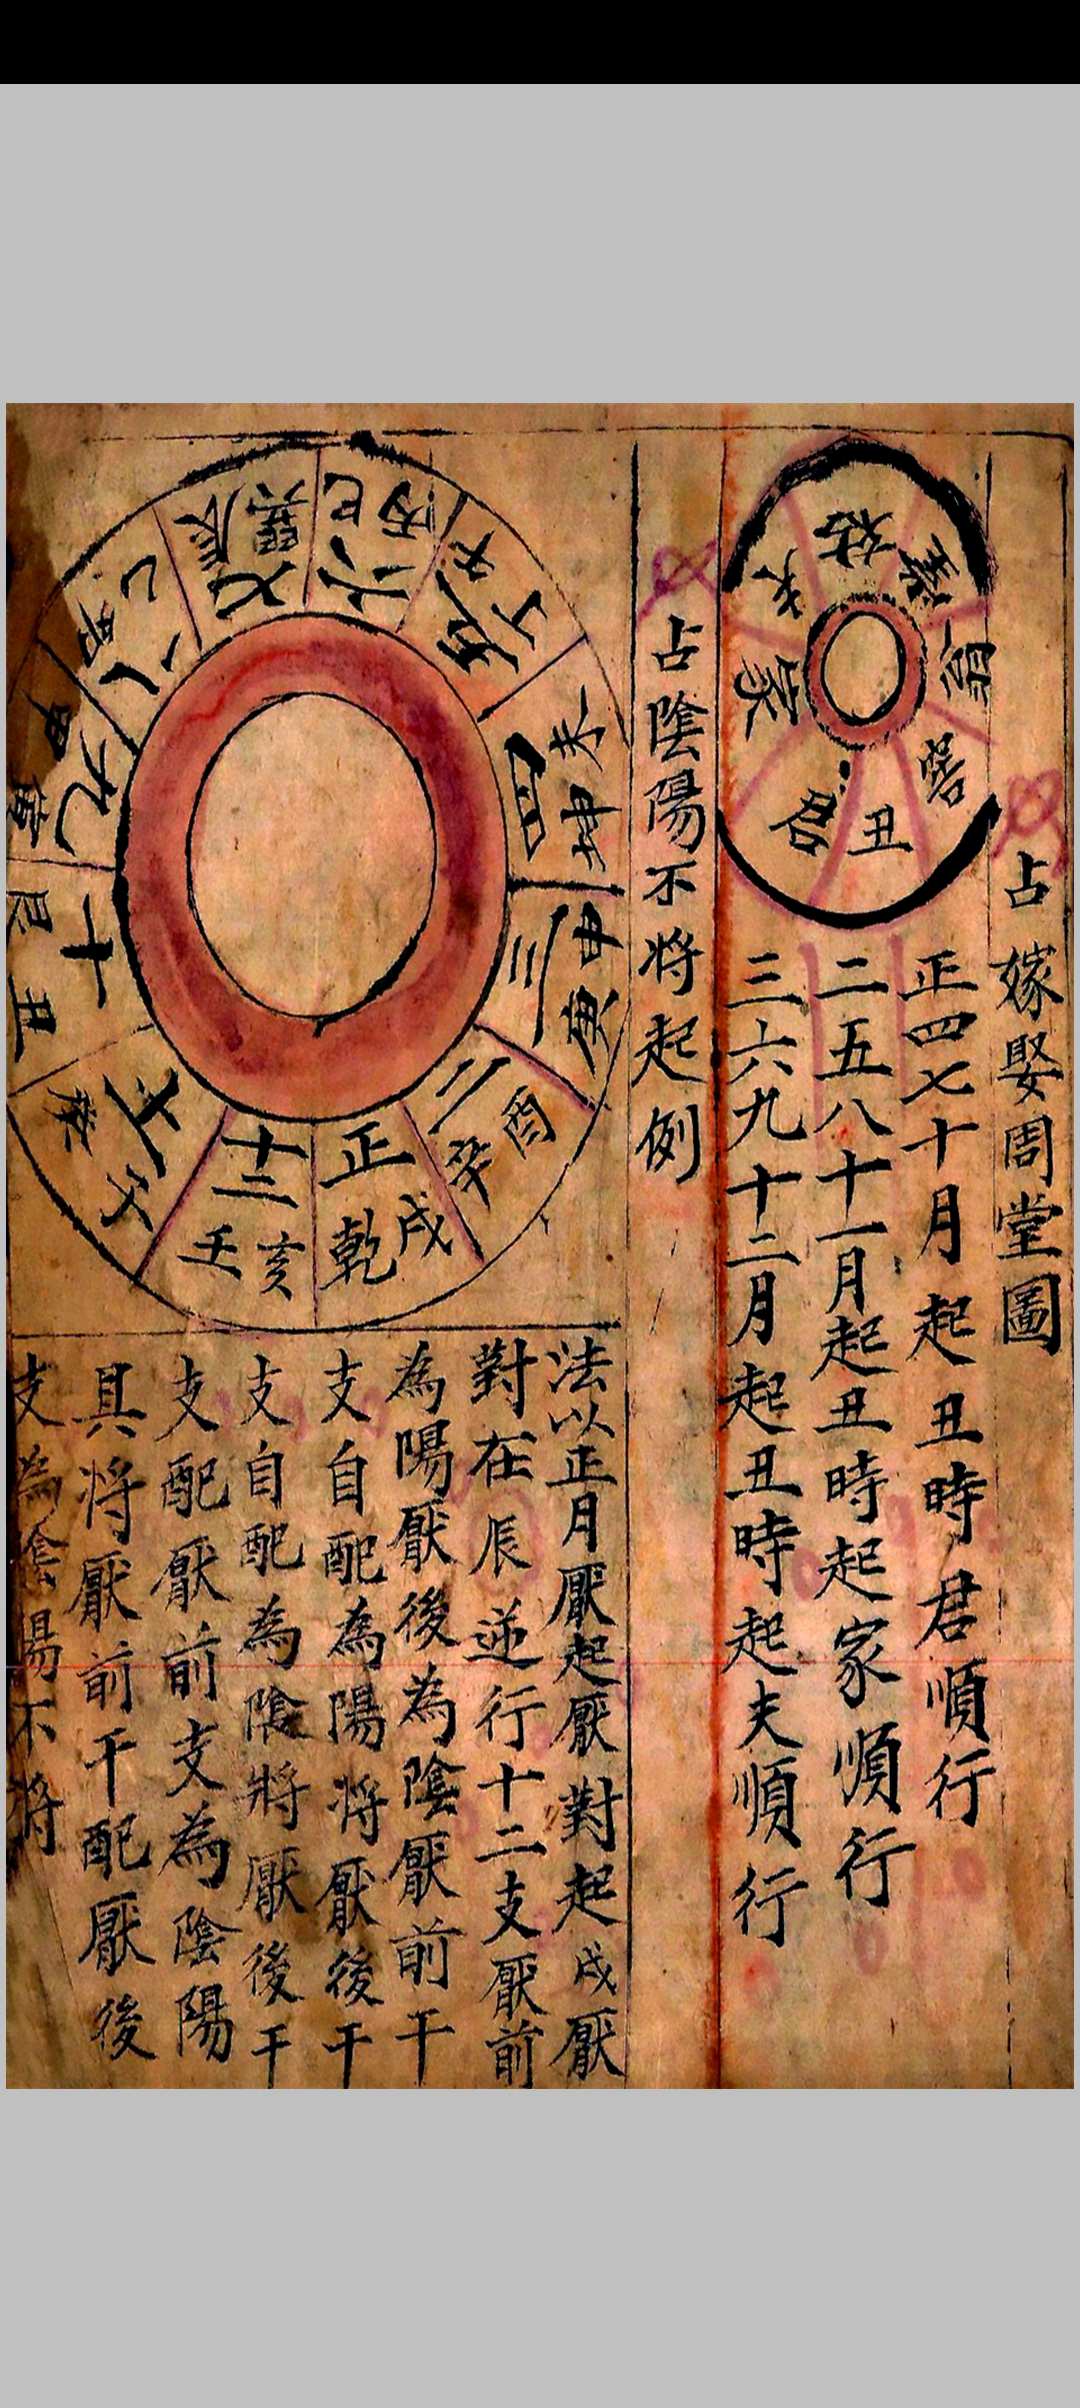 占嫁娶周堂圖
夫
姑
翁
家
君
丑
正四七十月起丑時君順行
二五八十一月起丑時起家順行
三六九十二月起丑時起夫順行
占陰陽不将起例
正 戌乾
二 酉辛
三 申庚
四 未坤
五 午丁
六 巳丙
七 辰巽
八 卯乙
九 甲寅
十 艮丑
十二 亥壬
法以正月厭起厭對起戌厭
對在辰逆行十二支厭前
為陽厭後為陰厭前干
支自配為陽将厭後干
支自配為陰將厭後干
支配厭前支為陰陽
具将厭前干配厭後
支為陰陽不将